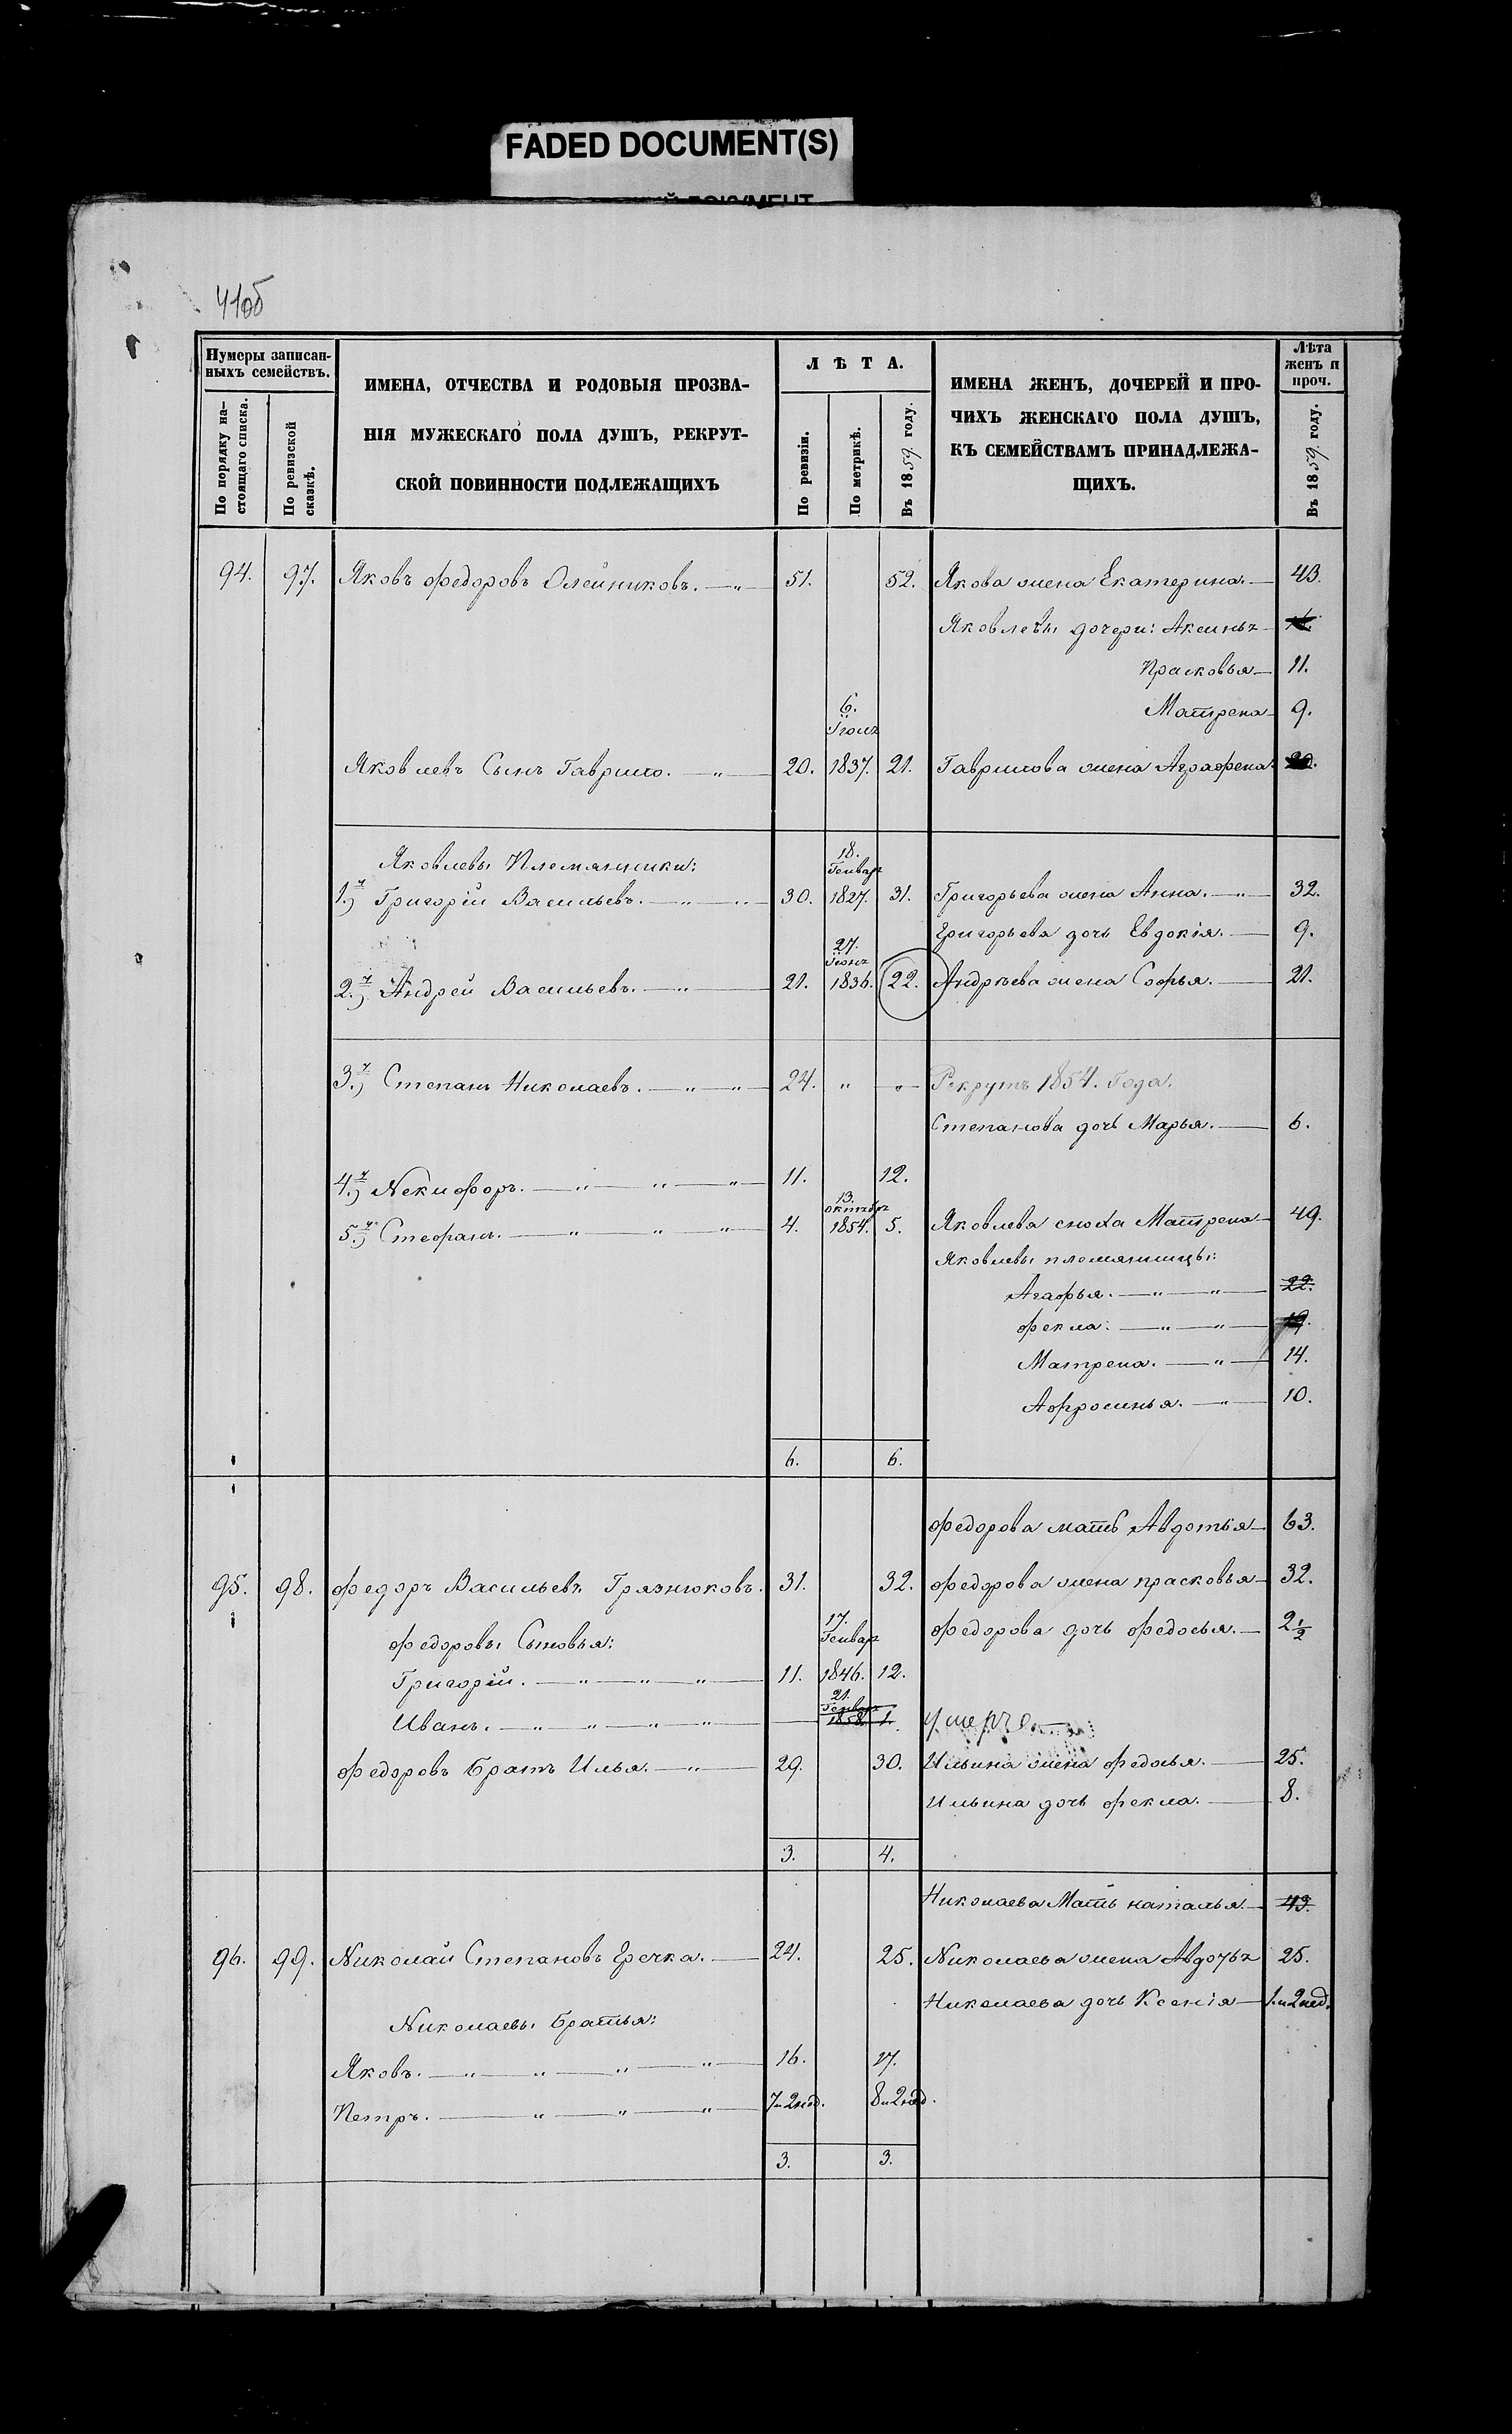 FADED DOCUMENT(S)
41об
Нумеры записан-
ныхъ семействъ.
По порядку на-
стоящаго списка.
По ревизской
сказкѣ.
ИМЕНА, ОТЧЕСТВА И РОДОВЫЯ ПРОЗВА-
НІЯ МУЖЕСКАГО ПОЛА ДУШЪ, РЕКРУТ-
СКОЙ ПОВИННОСТИ ПОДЛЕЖАЩИХЪ
ЛѢТА.
По ревизіи.
По метрикѣ.
Въ 1859 году.
ИМЕНА ЖЕНЪ, ДОЧЕРЕЙ И ПРО-
ЧИХЪ ЖЕНСКАГО ПОЛА ДУШЪ,
КЪ СЕМЕЙСТВАМЪ ПРИНАДЛЕЖА-
ЩИХЪ.
Лѣта
женъ и
проч.
Въ 1859 году.
94. 97. Яковъ Федоровъ Олейниковъ. — „ — 51. 52. Якова жена Екатерина. — 43.
Яковлевы дочери: Аксинья —
Прасковья — 11.
Матрена — 9.
6.
Іюля
Яковлевъ Сынъ Гаврило. — „ — 20. 1837. 21. Гаврилова жена Аграфена. 20.
Яковлевы Племянники:
18.
Генваря
1.й) Григорій Васильевъ. — „ — „ 30. 1827. 31. Григорьева жена Анна. — „ — 32.
Григорьева дочь Евдокія. — 9.
27.
2.й) Андрей Васильевъ. — „ — 21. 1836. 22. Андрѣева жена Софья. — 21.
3.й) Степанъ Николаевъ. — „ — „ — 24. „ — „ — Рекрутъ 1854. Года.
Степанова дочь Марья. — 6.
4.й) Никифоръ. — „ — „ — „ — 11. 12.
13.
октября
5.й) Стефанъ. — „ — „ — „ — 4. 1854. 5. Яковлева сноха Матрена — 49.
Яковлевы племянницы:
Агафья. — „ — „ — 22.
Фекла. — „ — „ — 19.
Матрена. — „ — 14.
Афросинья. — „ — 10.
6. 6.
Федорова мать Авдотья — 63.
95. 98. Федоръ Васильевъ Грязнюковъ. 31. 32. Федорова жена прасковья — 32.
17.
Генваря
Федоровы Сыновья: Федорова дочь Федосья. — 2 1/2
Григорій. — „ — „ — „ — 11. 1846. 12.
21.
Генваря
Иванъ. — „ — „ — „ — „ — 1858. 1. умеръ.
Федоровъ Братъ Илья. — „ — 29. 30. Ильина жена Федосья. — 25.
Ильина дочь Фекла. — 8.
3. 4.
Николаева Мать наталья. — 43.
96. 99. Николай Степановъ Гречка. — 24. 25. Николаева жена Авдотья 25.
Николаева дочь Ксенія — 1. и 2 нед.
Николаевы Братья:
Яковъ. — „ — „ — „ — „ — 16. 17.
Петръ. — „ — „ — „ — 7 и 2 нед. 8 и 2 нед.
3. 3.